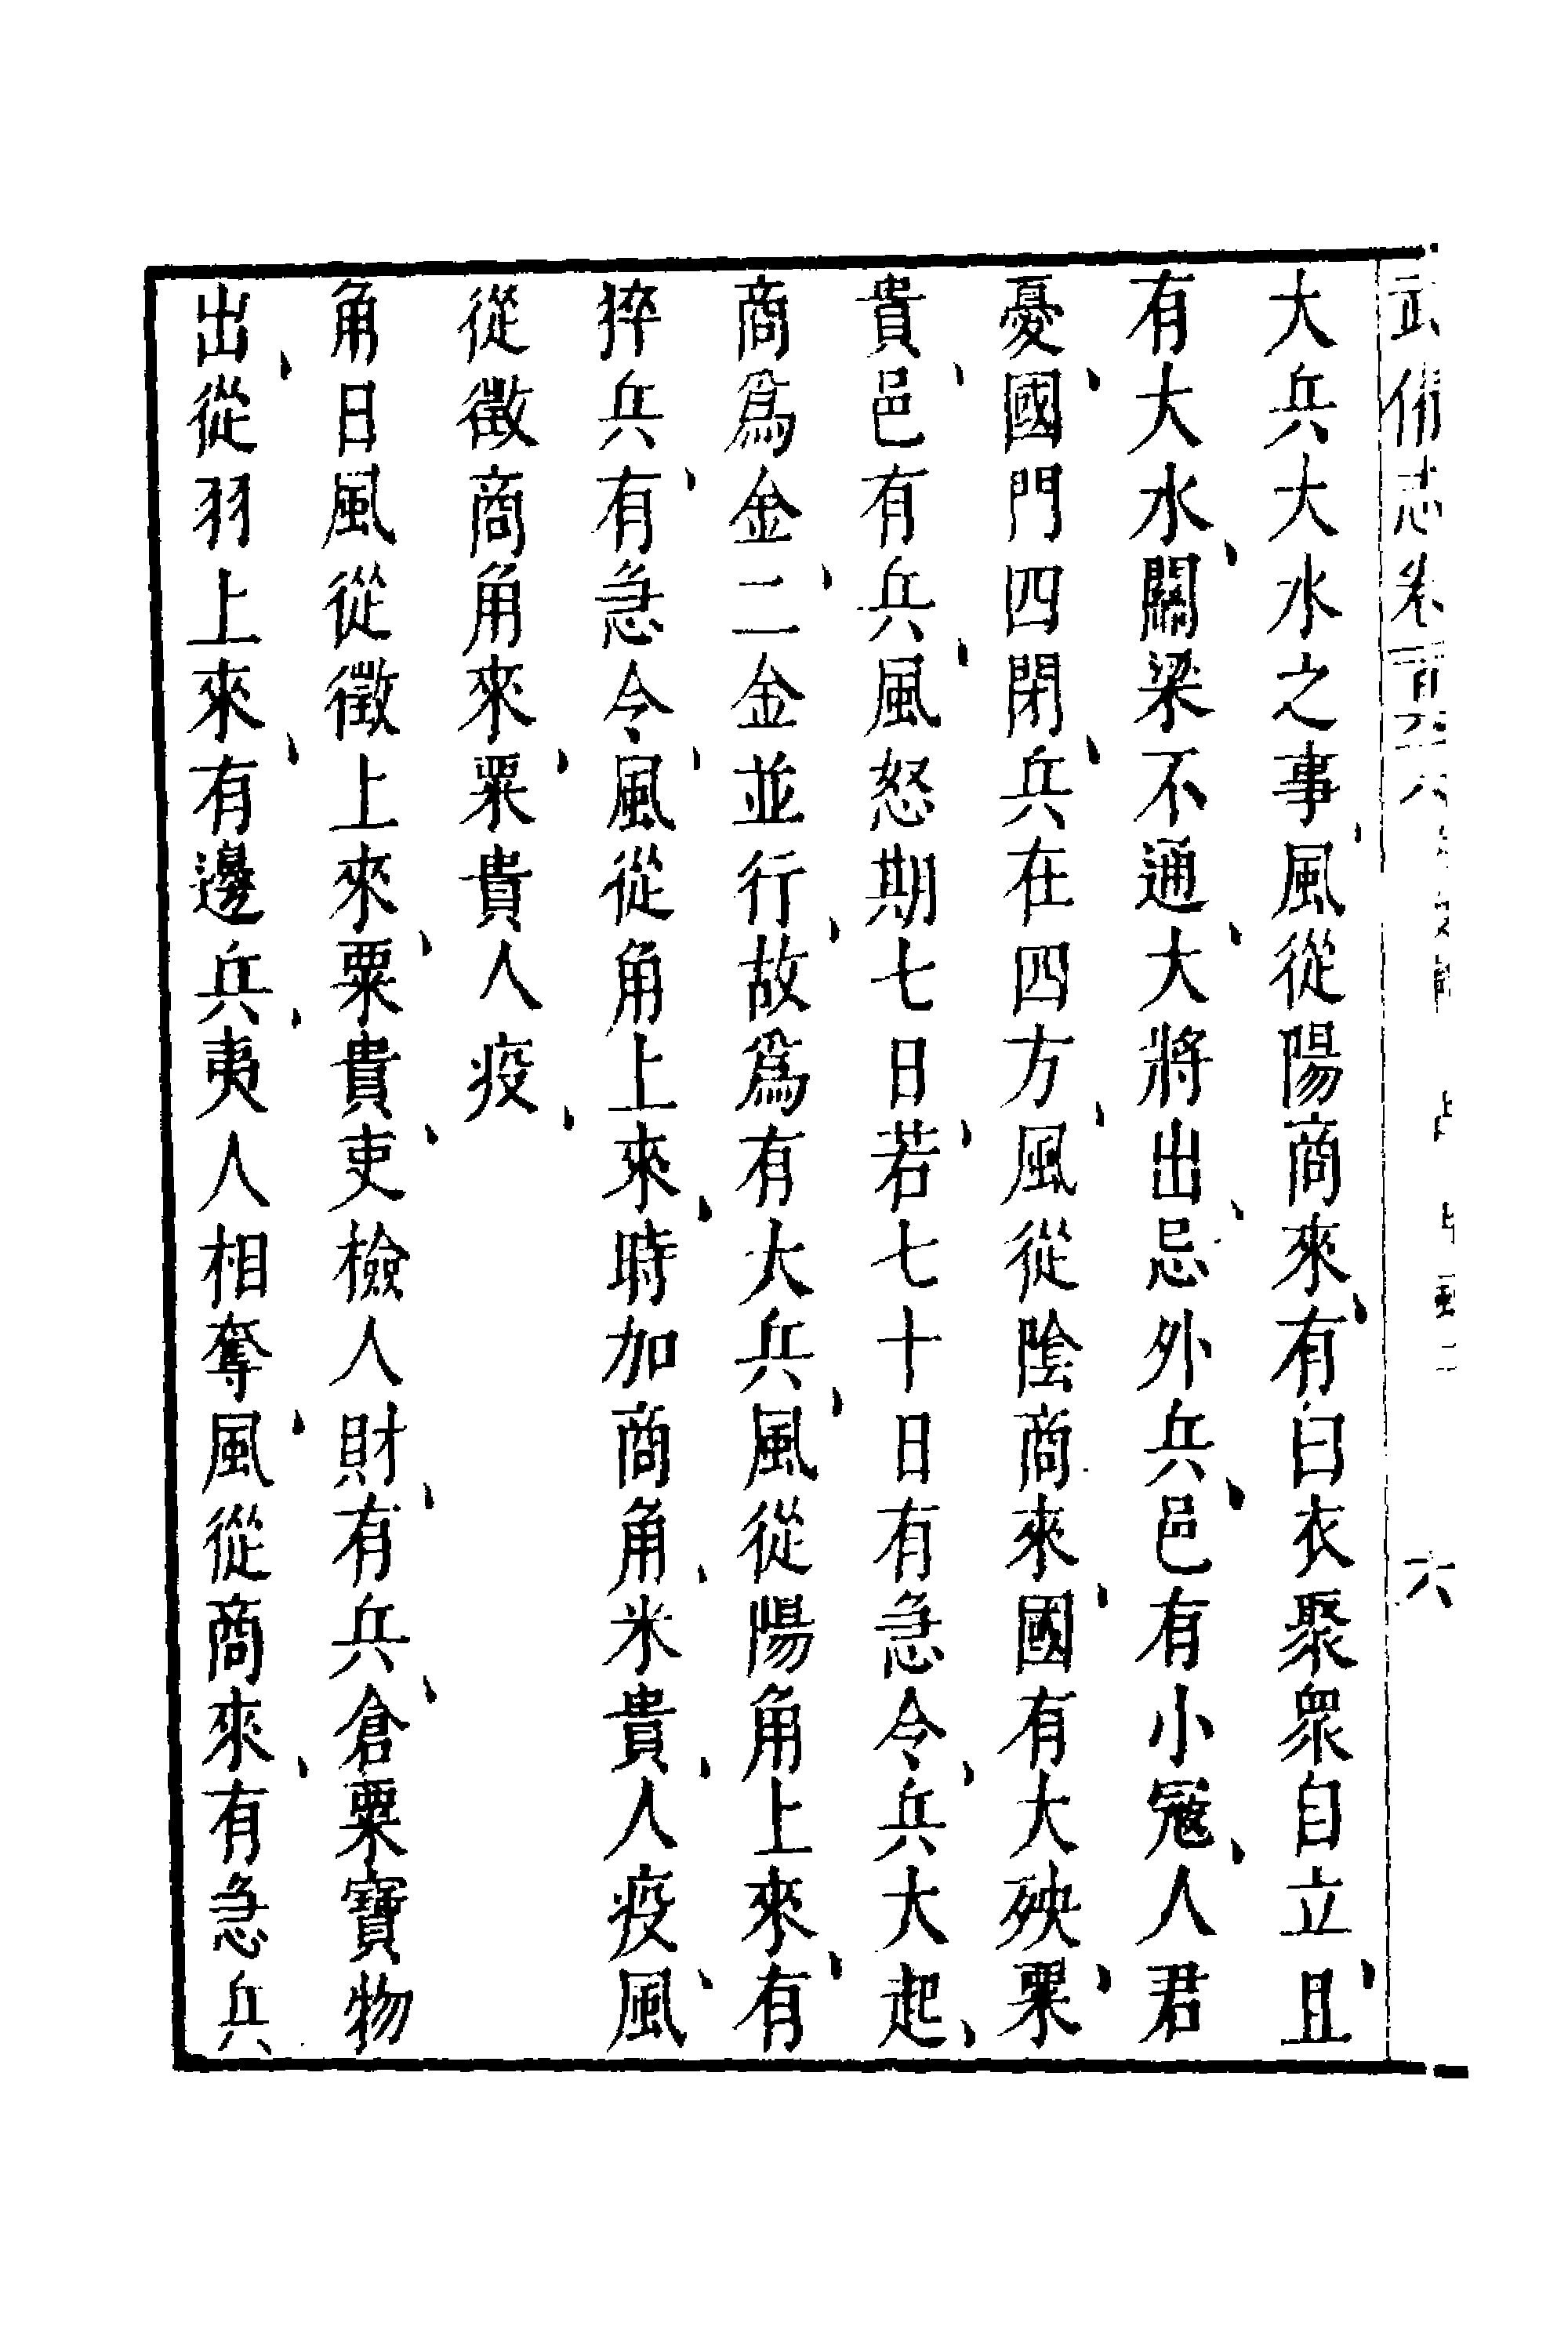 大兵大水之事、風從陽商來、有白衣聚眾自立、且
有大水、關梁不通、大將出、忌外兵、邑有小冦、人君
憂、國門四閉、兵在四方、風從陰商來、國有大殃、粟
貴、邑有兵、風怒期七日、若七十日有急令、兵大起、
商爲金、二金並行、故爲有大兵、風從陽角上來、有
猝兵、有急令、風從角上來、時加商角、米貴、人疫、風
從徵商角來、粟貴人疫、
角日風從徵上來、粟貴、吏檢人財、有兵、倉粟寶物
出、從羽上來、有邊兵、夷人相奪、風從商來、有急兵